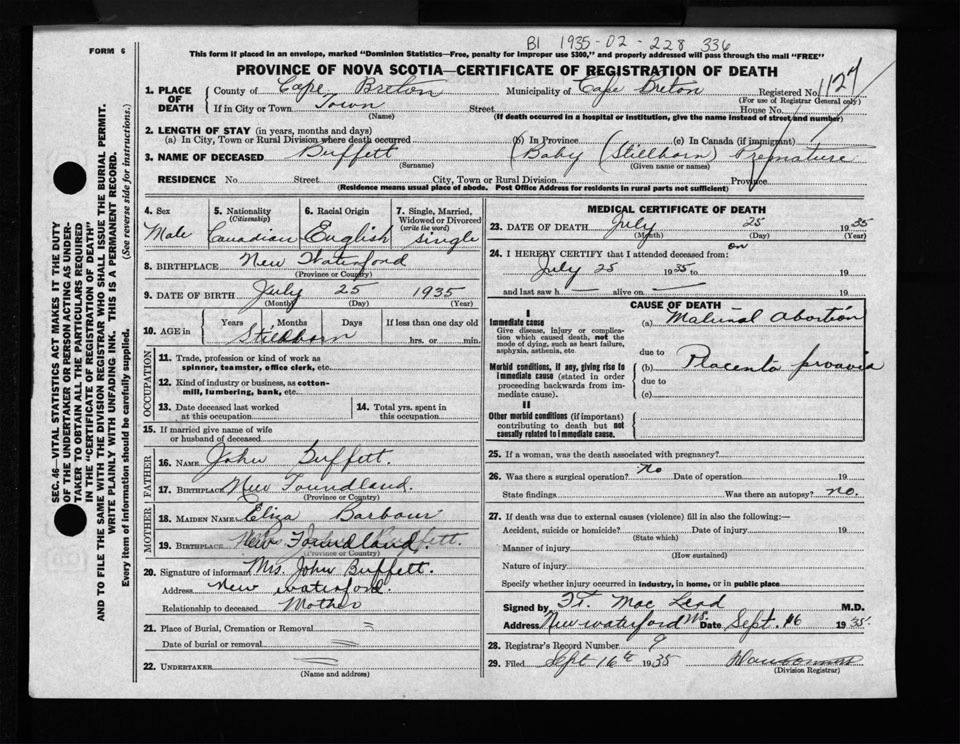 B1 1935-02-228 336
FORM 6
This form if placed in an envelope, marked "Dominion Statistics—Free, penalty for improper use $300," and properly addressed will pass through the mail "FREE"
PROVINCE OF NOVA SCOTIA—CERTIFICATE OF REGISTRATION OF DEATH
1. PLACE OF DEATH { County of Cape Breton Municipality of Cape Breton Registered No. 1127
(For use of Registrar General only)
If in City or Town Town Street House No.
(Name) (If death occurred in a hospital or institution, give the name instead of street and number)
2. LENGTH OF STAY (in years, months and days)
(a) In City, Town or Rural Division where death occurred (b) In Province (c) In Canada (if immigrant)
3. NAME OF DECEASED Buffett (Baby (Stillborn) Premature
(Surname) (Given name or names)
RESIDENCE No. Street City, Town or Rural Division Province
(Residence means usual place of abode. Post Office Address for residents in rural parts not sufficient)
SEC. 46—VITAL STATISTICS ACT MAKES IT THE DUTY
OF THE UNDERTAKER OR PERSON ACTING AS UNDER-
TAKER TO OBTAIN ALL THE PARTICULARS REQUIRED
IN THE "CERTIFICATE OF REGISTRATION OF DEATH"
AND TO FILE THE SAME WITH THE DIVISION REGISTRAR WHO SHALL ISSUE THE BURIAL PERMIT.
WRITE PLAINLY WITH UNFADING INK. THIS IS A PERMANENT RECORD.
Every item of information should be carefully supplied. (See reverse side for instructions.)
4. Sex 5. Nationality 6. Racial Origin 7. Single, Married,
(Citizenship) Widowed or Divorced
(write the word)
Male Canadian English single
8. BIRTHPLACE New Waterford
(Province or Country)
9. DATE OF BIRTH July 25 1935
(Month) (Day) (Year)
10. AGE in { Years Months Days If less than one day old
Stillborn hrs. or min.
OCCUPATION
11. Trade, profession or kind of work as
spinner, teamster, office clerk, etc.
12. Kind of industry or business, as cotton-
mill, lumbering, bank, etc.
13. Date deceased last worked
at this occupation
14. Total yrs. spent in
this occupation
15. If married give name of wife
or husband of deceased
FATHER
16. NAME John Buffett.
17. BIRTHPLACE New Foundland.
(Province or Country)
MOTHER
18. MAIDEN NAME Eliza Barbour
19. BIRTHPLACE New Foundland.
(Province or Country)
20. Signature of informant Mrs. John Buffett.
Address New Waterford.
Relationship to deceased Mother
21. Place of Burial, Cremation or Removal
Date of burial or removal
22. UNDERTAKER
(Name and address)
MEDICAL CERTIFICATE OF DEATH
23. DATE OF DEATH July 25 1935
(Month) (Day) (Year)
24. I HEREBY CERTIFY that I attended deceased from: on
July 25 1935 to 19
and last saw h alive on 19
CAUSE OF DEATH
I
Immediate cause
Give disease, injury or complica-
tion which caused death, not the
mode of dying, such as heart failure,
asphyxia, asthenia, etc.
(a) Maternal Abortion
due to
Morbid conditions, if any, giving rise to
immediate cause (stated in order
proceeding backwards from im-
mediate cause).
(b) Placenta praevia
due to
(c)
II
Other morbid conditions (if important)
contributing to death but not
causally related to immediate cause.
25. If a woman, was the death associated with pregnancy?
26. Was there a surgical operation? no Date of operation 19
State findings Was there an autopsy? no.
27. If death was due to external causes (violence) fill in also the following:—
Accident, suicide or homicide? Date of injury 19
(State which)
Manner of injury
(How sustained)
Nature of injury
Specify whether injury occurred in industry, in home, or in public place
Signed by F.T. Mac Leod M.D.
Address New Waterford NS. Date Sept. 16 1935.
28. Registrar's Record Number 9
29. Filed Sept 16th 1935
(Division Registrar)